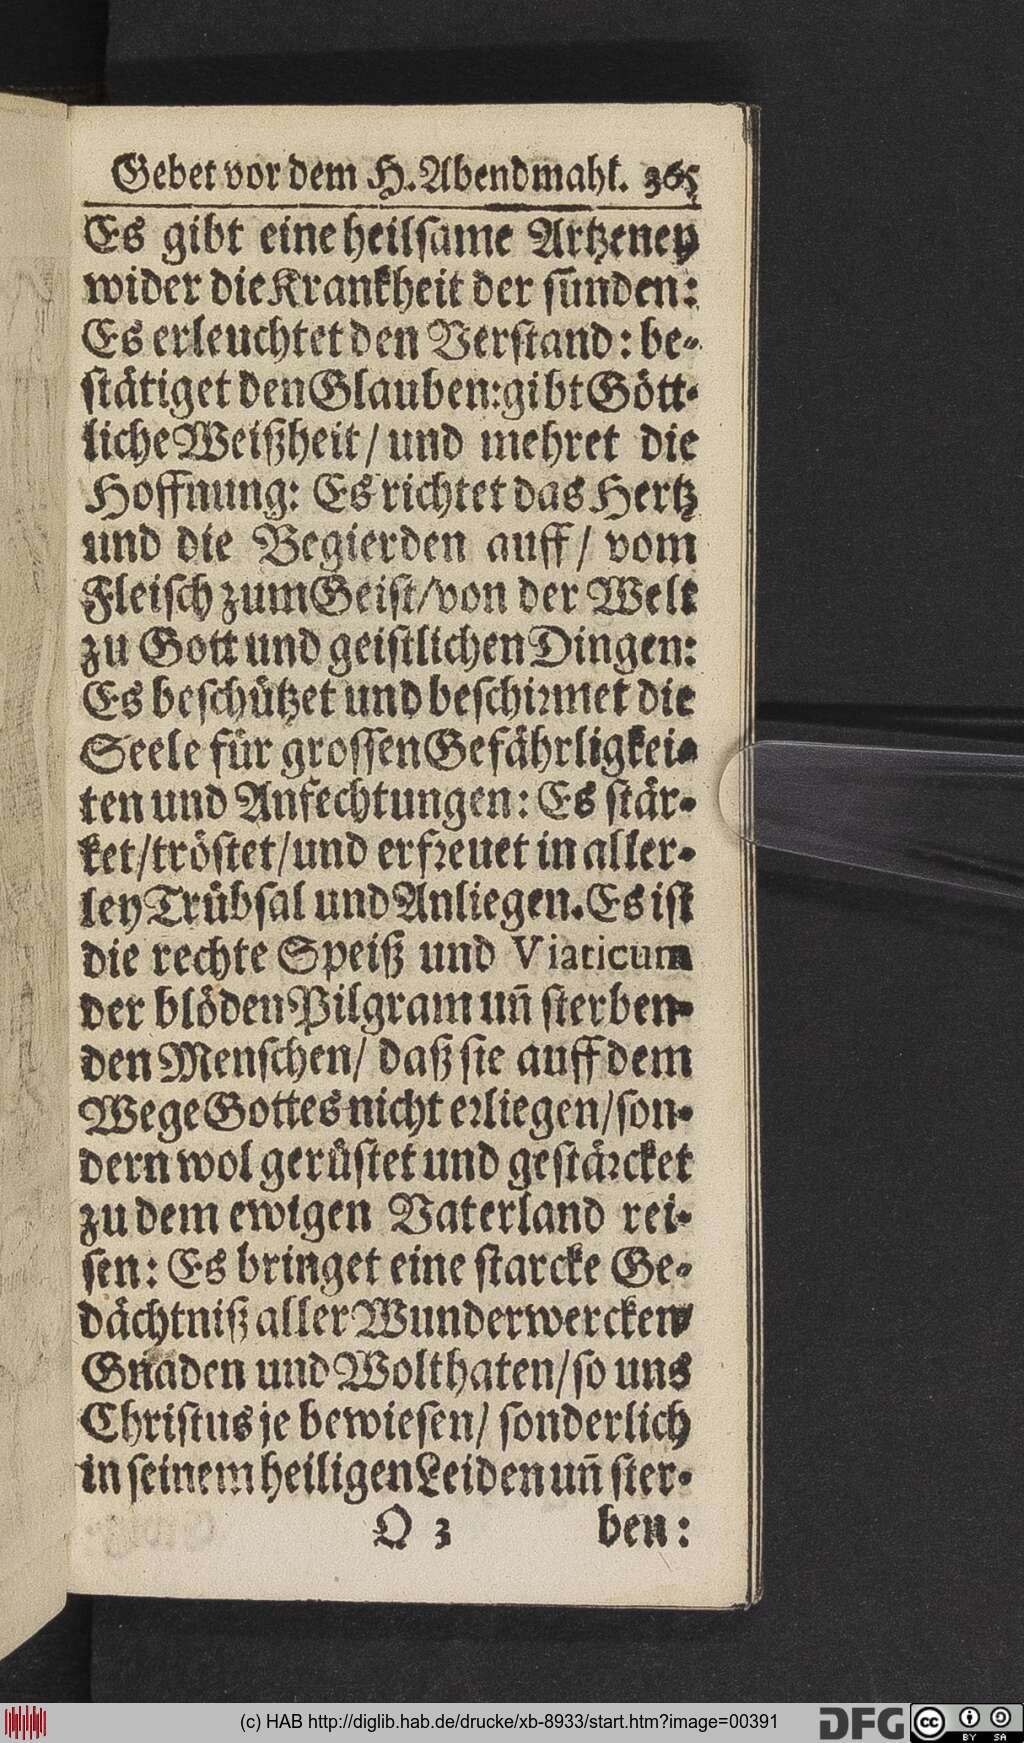 Gebet vor dem H. Abendmahl. 365
Es gibt eine heilsame Artzeney
wider die Kranckheit der sünden:
Es erleuchtet den Verstand: be-
stätiget den Glauben: gibt Gött-
liche Weißheit / und mehret die
Hoffnung: Es richtet das Hertz
und die Begierden auff / vom
Fleisch zum Geist / von der Welt
zu Gott und geistlichen Dingen:
Es beschützet und beschirmet die
Seele für grossen Gefährligkei-
ten und Anfechtungen: Es stär-
ket / tröstet / und erfreuet in aller-
ley Trübsal und Anliegen. Es ist
die rechte Speiß und Viaticum
der blöden Pilgram uñ sterben-
den Menschen / daß sie auff dem
Wege Gottes nicht erliegen / son-
dern wol gerüstet und gestärcket
zu dem ewigen Vaterland rei-
sen: Es bringet eine starcke Ge-
dächtniß aller Wunderwercken /
Gnaden und Wolthaten / so uns
Christus je bewiesen / sonderlich
in seinem heiligen Leiden uñ ster-
Q 3 ben:
(c) HAB http://diglib.hab.de/drucke/xb-8933/start.htm?image=00391
DFG
cc BY SA